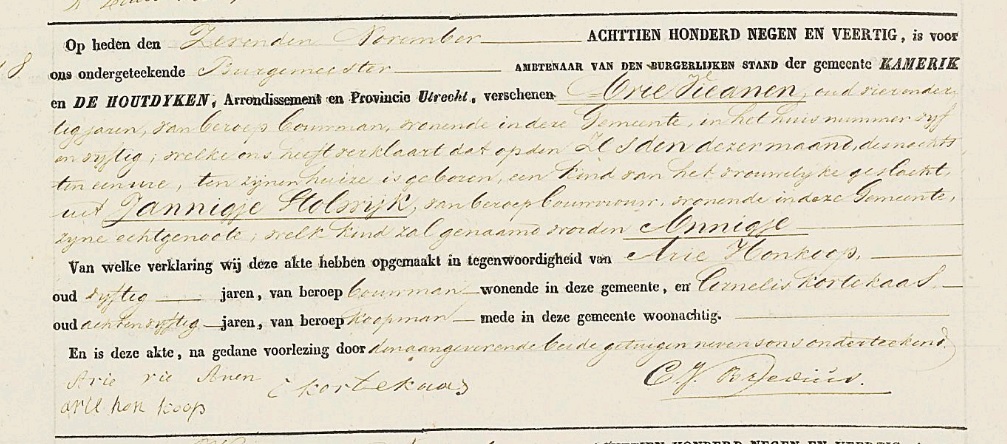 Op heden den Zevenden November ACHTTIEN HONDERD NEGEN EN VEERTIG, is voor
18
ons ondergeteekende Burgemeester AMBTENAAR VAN DEN BURGERLIJKEN STAND der gemeente KAMERIK
en DE HOUTDYKEN, Arrondissement en Provincie Utrecht, verschenen Arie Vieanen, oud vierender
tig jaren, van beroep bouwman, wonende in deze Gemeente, in het huis nummer vyf
en vyftig; welke ons heeft verklaart dat op den Zesden dezer maand, des nachts
ten een ure, ten zynen huize is geboren, een kind van het vrouwelyke geslacht,
uit Jannigje Stolwyk, van beroep bouwvrouw, wonende in deze Gemeente,
zyne echtgenoote; welk kind zal genaamd worden Annigje
Van welke verklaring wij deze akte hebben opgemaakt in tegenwoordigheid van Arie Honkoop,
oud vyftig jaren, van beroep bouwman wonende in deze gemeente, en Cornelis Kortekaas
oud achtenvyftig jaren, van beroep koopman mede in deze gemeente woonachtig.
En is deze akte, na gedane voorlezing door den aangever en de beide getuigen nevens ons onderteekend.
Arie vie Anen C kortekaas
arie hon koop
ACHTTIEN HONDERD NEGEN EN VEERTIG, is voor